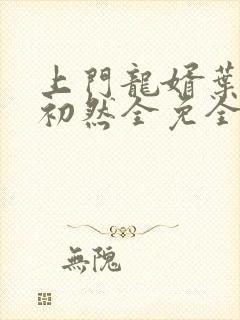 上門龍婿葉
初然全免全
無隗